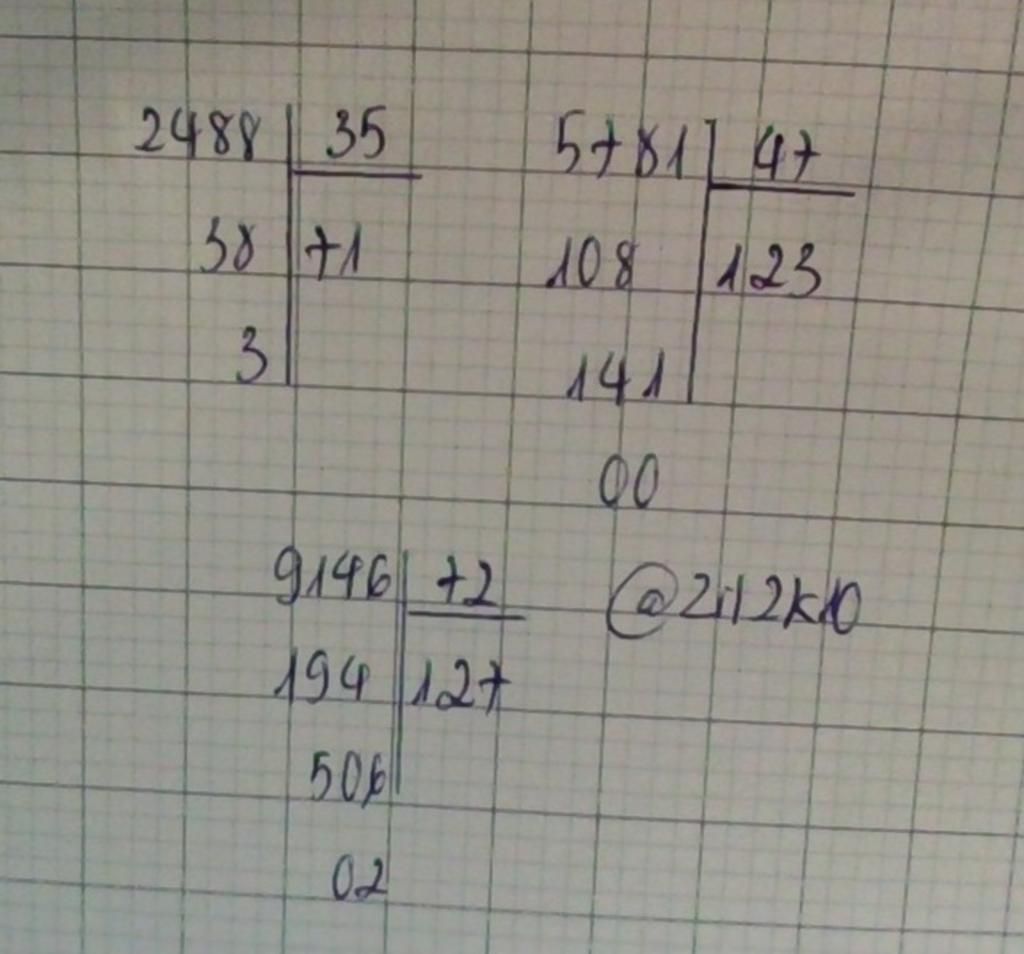 2488 35
38 71
3
5781 47
108 123
141
00
9146 72
194 127
506
02